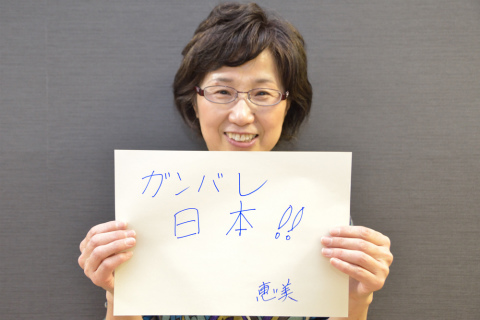 ガンバレ
日本!!
恵美